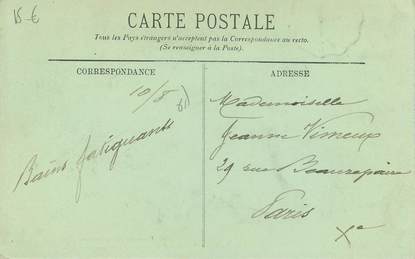 15 €
CARTE POSTALE
Tous les Pays étrangers n'acceptent pas la Correspondance au recto.
(Se renseigner à la Poste).
CORRESPONDANCE
10/8
Bains fatiguants
ADRESSE
Mademoiselle
Jeanne Vimeux
29 rue Beaurepaire
Paris
Xe